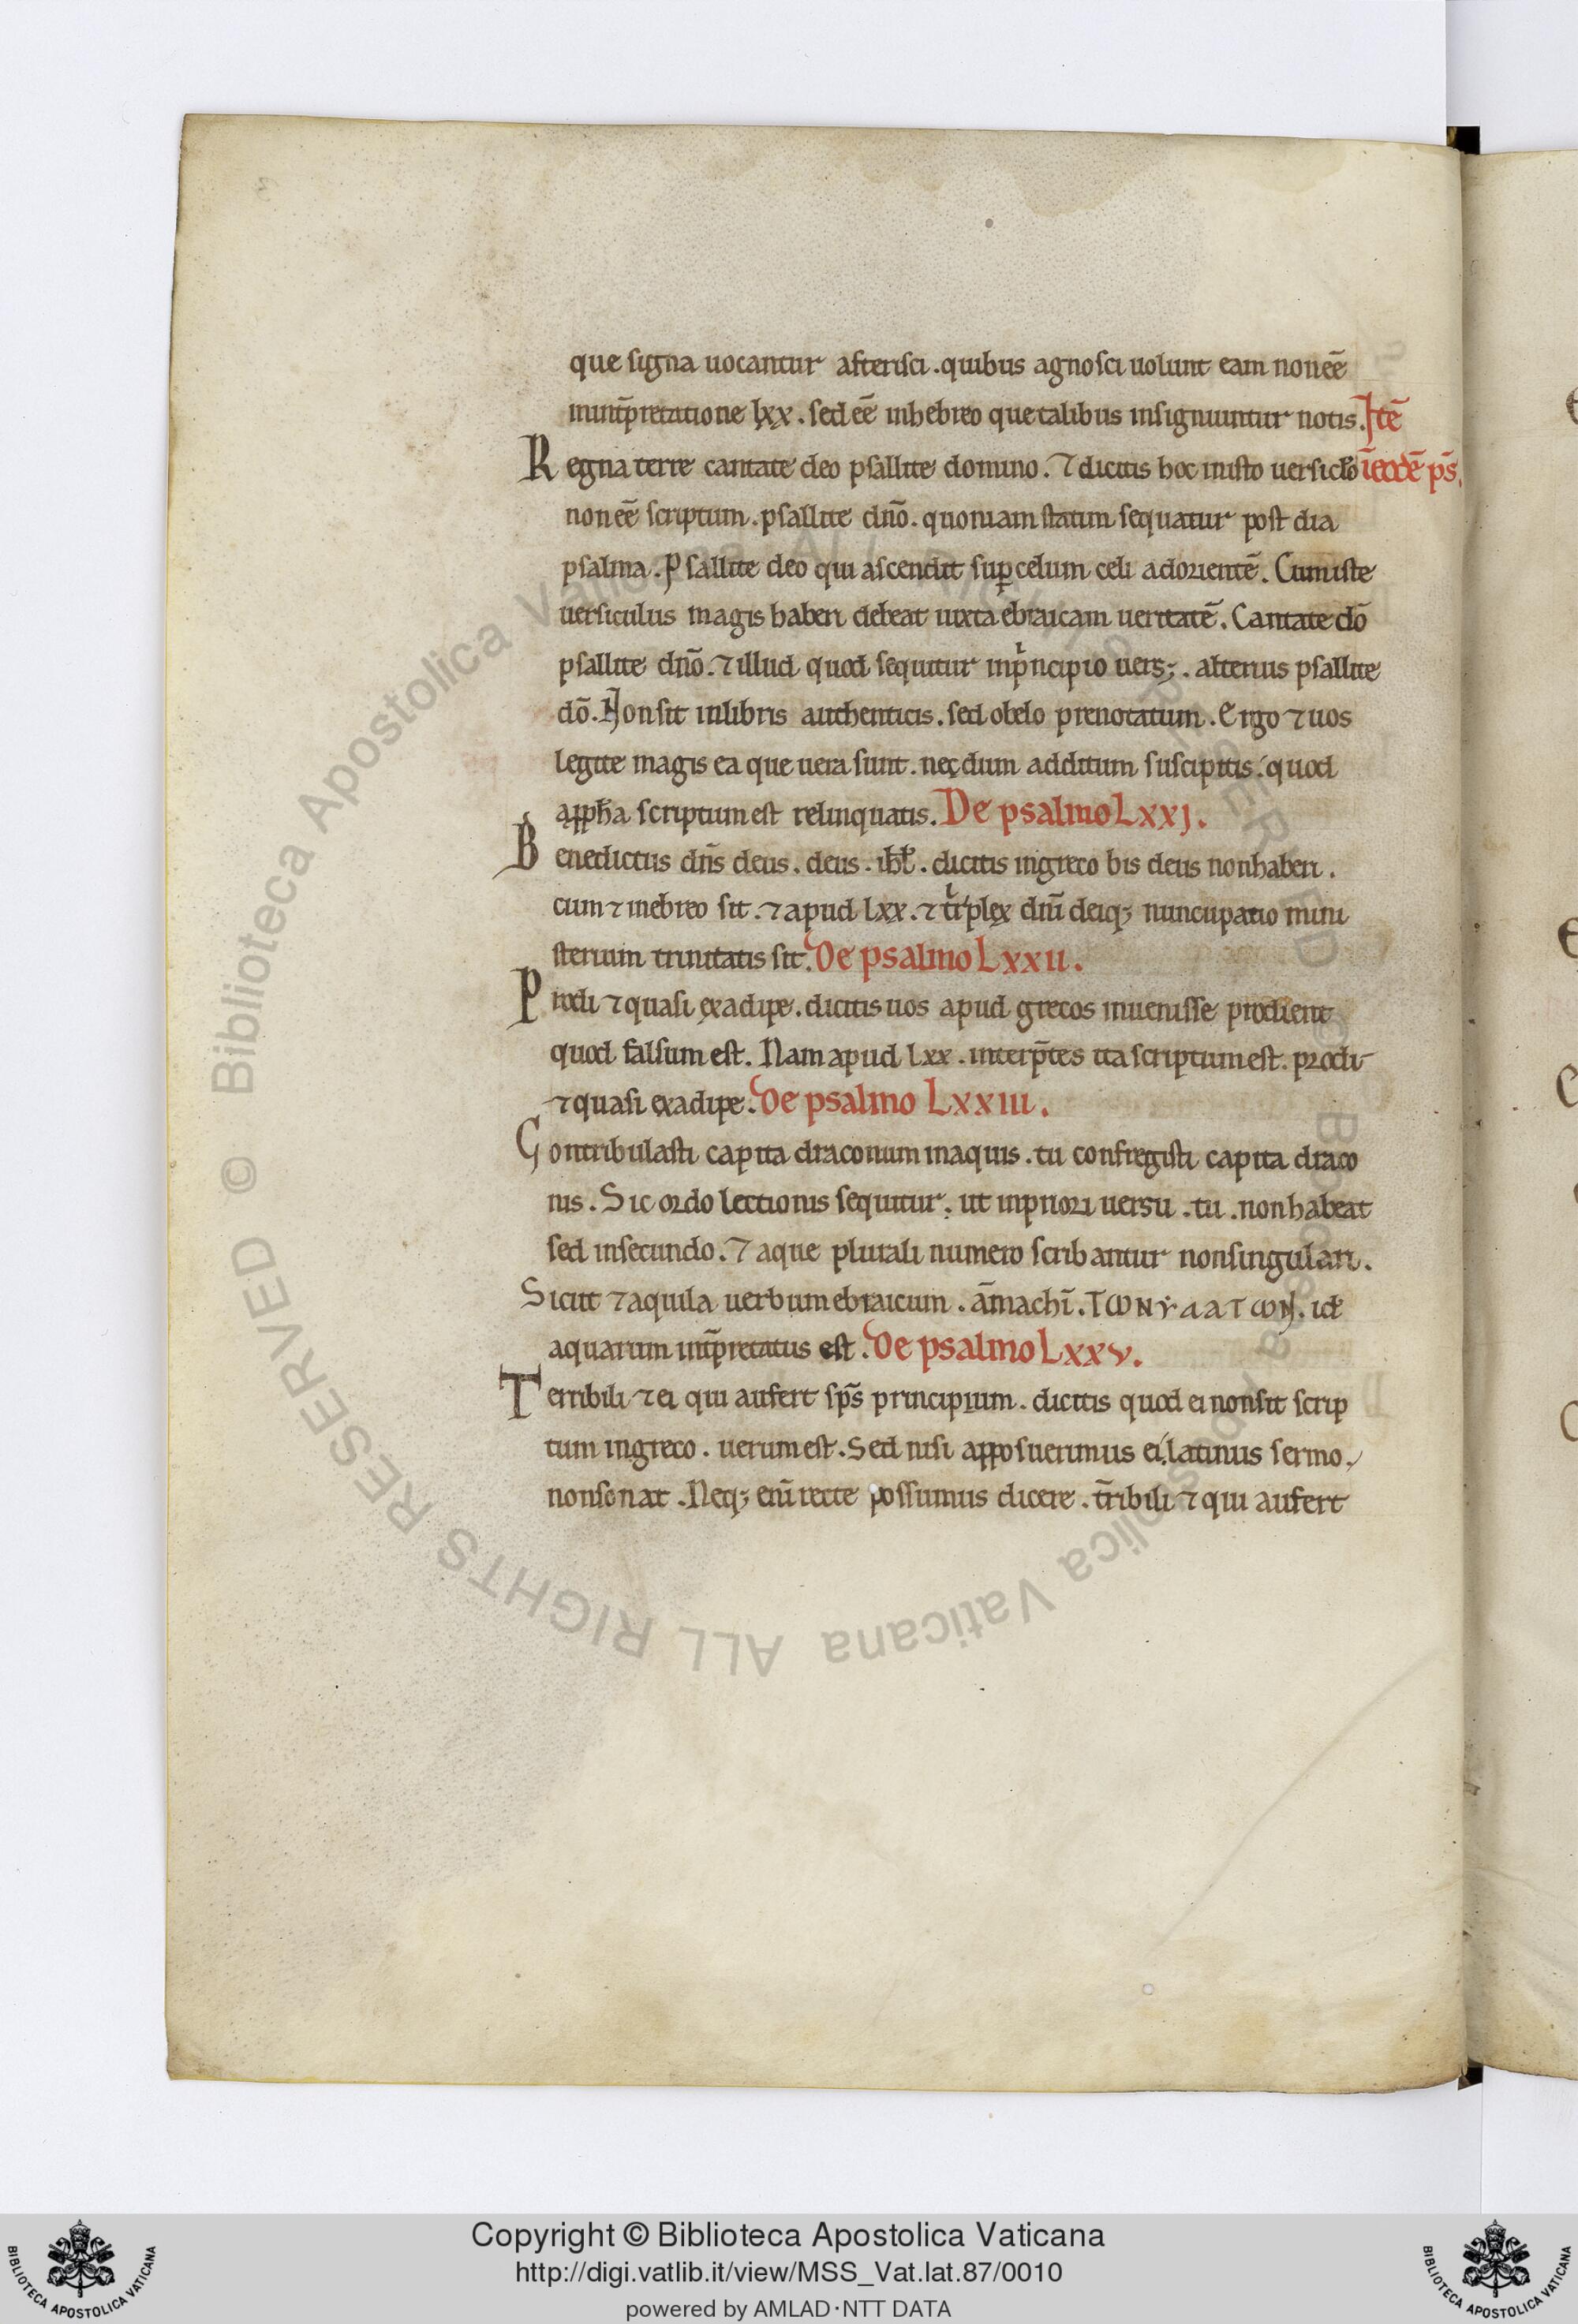 que signa uocantur asterisci . quibus agnosci uolunt eam non eē
inint̄pretatione lxx . sed eē inhebreo que talibus insigniuntur notis . Itē
Regna terre cantate deo psallite domino . ⁊ dicitis hoc inisto uersiclo īeodē ps̄ .
non eē scriptum . psallite dn̄o . quoniam statim sequatur post dia
psalma . Psallite deo qui ascendit suꝑ celum celi ad orientē . Cum iste
uersiculus magis haberi debeat iuxta ebraicam ueritatē . Cantate dō
psallite dn̄o . ⁊ illud quod sequitur inpͥncipio uers; . alterius psallite
dō . Non sit in libris authenticis . sed obelo prenotatum . Ergo ⁊ uos
legite magis ea que uera sunt . nec dum additum suscipitis quod
a scriptum est relinquatis . De psalmo Lxxj .
Benedictus dn̄s deus . deus . isrł . dicitis ingreco bis deus non haberi .
cum ⁊ inebreo sit . ⁊ apud lxx . ⁊ tͥplex dn̄i deiq; nuncupatio mini
sterium trinitatis sit . De psalmo Lxxii .
Prodi ⁊ quasi exadipe . dicitis uos apud grecos inuenisse prodient
quod falsum est . Nam apud lxx . interp̄tes ita scriptum est . prodi
⁊ quasi exadipe . De psalmo Lxxiii .
Contribulasti capita draconum inaquis . tu confregisti capita draco
nis . Sic ordo lectionis sequitur . ut inpriori uersu . tu . non habeat
sed insecundo . ⁊ aque plurali numero scribantur non singulari .
Sicut ⁊ aquila uerbum ebraicum . āmachī . ΤωΝΥδαΤωΝ . idē
aquarum int̄pretatus est . De psalmo Lxxv .
Terribili ⁊ ei qui aufert sps̄ principium . dicitis quod ei non sit scrip
tum ingreco . uerum est . Sed nisi apposuerimus ei latinus sermo .
non sonat . Neq; enī recte possumus dicere . t̄ribili ⁊ qui aufert
Copyright © Biblioteca Apostolica Vaticana
http://digi.vatlib.it/view/MSS_Vat.lat.87/0010
powered by AMLAD·NTT DATA
BIBLIOTECA APOSTOLICA VATICANA
BIBLIOTECA APOSTOLICA VATICANA
© Biblioteca Apostolica Vaticana ALL RIGHTS RESERVED © Biblioteca Apostolica Vaticana ALL RIGHTS RESERVED